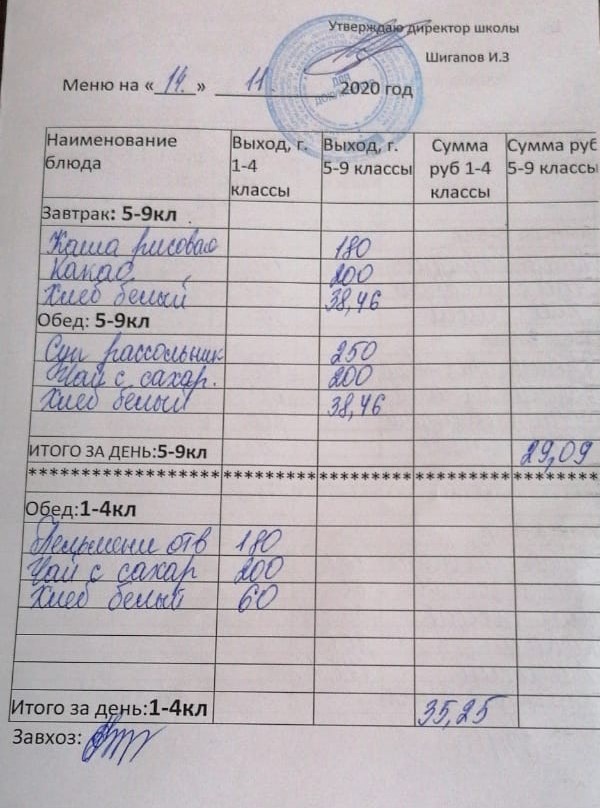 Утверждаю директор школы
Шигапов И.З
Меню на «14.» 11 2020 год
Наименование блюда Выход, г. 1-4 классы Выход, г. 5-9 классы Сумма руб 1-4 классы Сумма руб 5-9 классы
Завтрак: 5-9кл
Каша рисовая 180
Какао 200
Хлеб белый 38,46
Обед: 5-9кл
Суп рассольник 250
Чай с сахар. 200
Хлеб белый 38,46
ИТОГО ЗА ДЕНЬ:5-9кл 29,09
Обед:1-4кл
Пельмени отв 180
Чай с сахар 200
Хлеб белый 60
Итого за день:1-4кл 35,25
Завхоз: